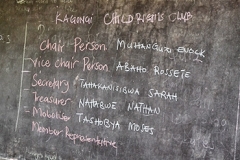 KAGONGI CHILDRIGHTS CLUB
Chair Person. MUHANGUZI ENOCK
Vice chair Person. ABAHO ROSSETE
Secretary TAHAKANISIBWA SARAH
Treasurer NATABWE NATHAN
Mobiliser TASHOBYA MOSES
Member Representative